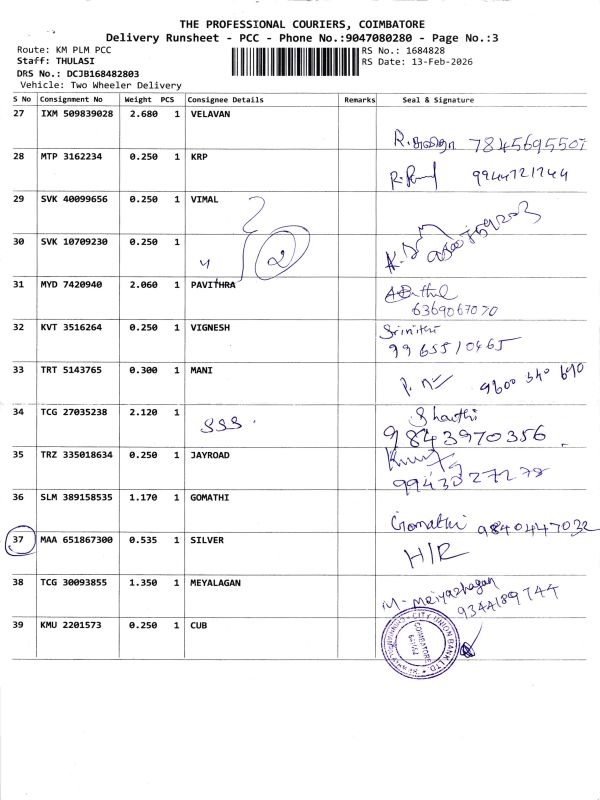 THE PROFESSIONAL COURIERS, COIMBATORE
Delivery Runsheet - PCC - Phone No.:9047080280 - Page No.:3
Route: KM PLM PCC
RS No.: 1684828
Staff: THULASI
RS Date: 13-Feb-2026
DRS No.: DCJB168482803
Vehicle: Two Wheeler Delivery
S No Consignment No Weight PCS Consignee Details Remarks Seal & Signature
27 IXM 509839028 2.680 1 VELAVAN
7845695507
28 MTP 3162234 0.250 1 KRP
9944721744
29 SVK 40099656 0.250 1 VIMAL
30 SVK 10709230 0.250 1
2
31 MYD 7420940 2.060 1 PAVITHRA
6369067070
32 KVT 3516264 0.250 1 VIGNESH
Srinithi
9965510465
33 TRT 5143765 0.300 1 MANI
9600 340 690
34 TCG 27035238 2.120 1
SSS
Shanthi
9843970356
35 TRZ 335018634 0.250 1 JAYROAD
9943027278
36 SLM 389158535 1.170 1 GOMATHI
Gomathi 9840447032
37 MAA 651867300 0.535 1 SILVER
H/R
38 TCG 30093855 1.350 1 MEYALAGAN
M. Meiyazhagan
9344189744
39 KMU 2201573 0.250 1 CUB
CITY UNION BANK LTD
COIMBATORE